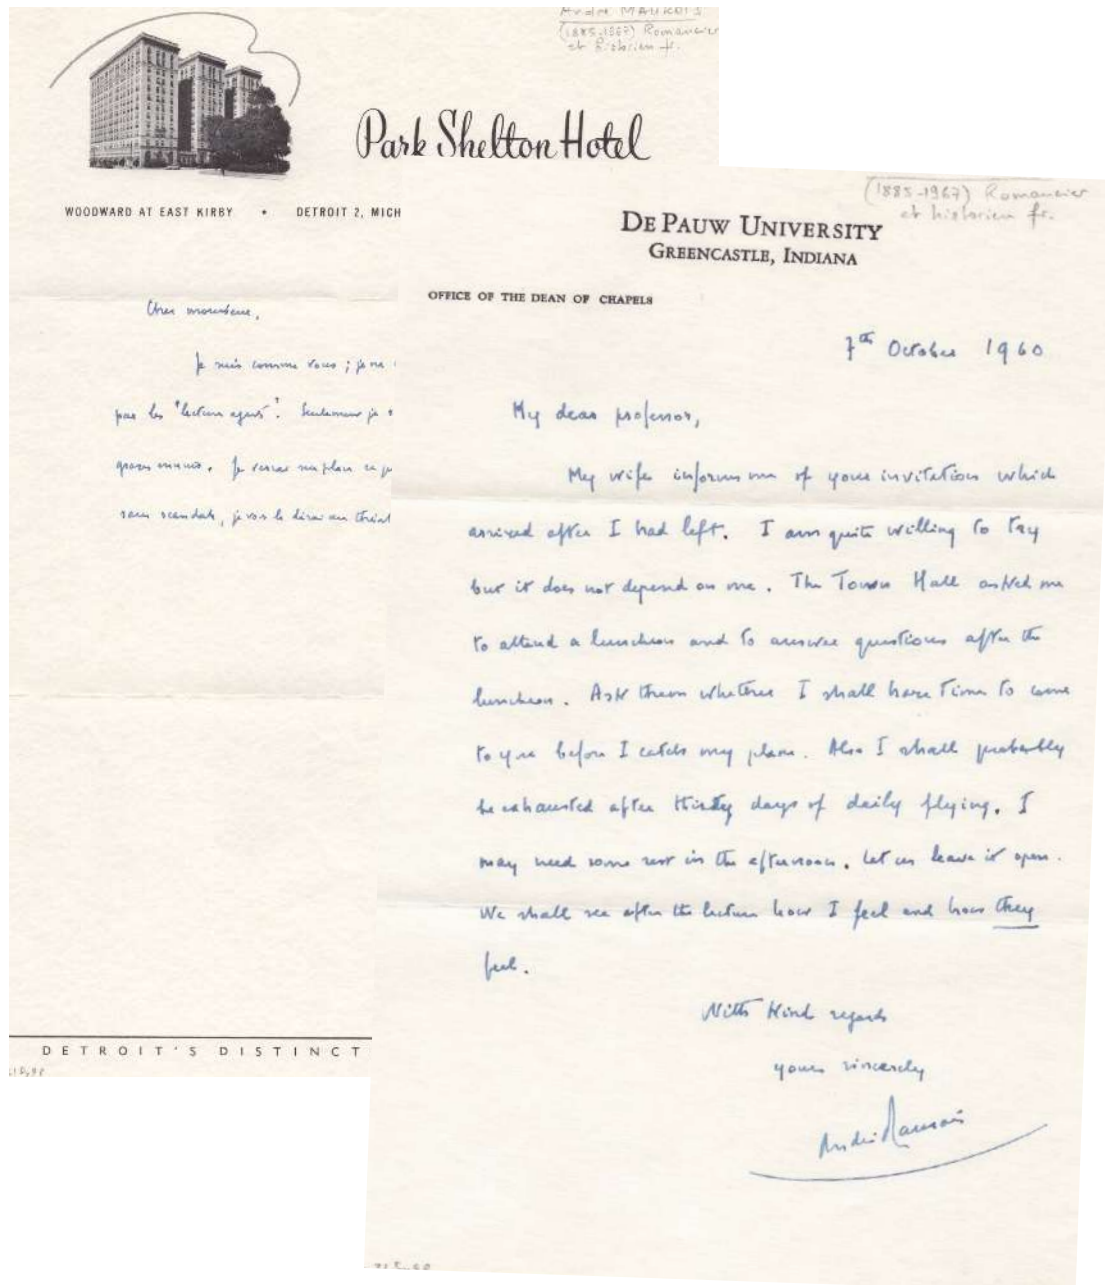 André MAUROIS
(1885-1967) Romancier
et historien fr.
Park Shelton Hotel
WOODWARD AT EAST KIRBY • DETROIT 2, MICH
Cher monsieur,
Je suis comme vous ; je ne
pas les "lecture agents". Seulement je
sans scandale, je vous le dirai au
DETROIT'S DISTINCT
(1885-1967) Romancier
et historien fr.
DE PAUW UNIVERSITY
GREENCASTLE, INDIANA
OFFICE OF THE DEAN OF CHAPELS
7th October 1960
My dear professor,
My wife informs me of your invitation which
arrived after I had left. I am quite willing to try
but it does not depend on me. The Town Hall asked me
to attend a luncheon and to answer questions after the
luncheon. Ask them whether I shall have time to come
to you before I catch my plane. Also I shall probably
be exhausted after thirty days of daily flying. I
may need some rest in the afternoon. Let us leave it open.
We shall see after the lecture how I feel and how they
feel.
With kind regards
yours sincerely
André Maurois